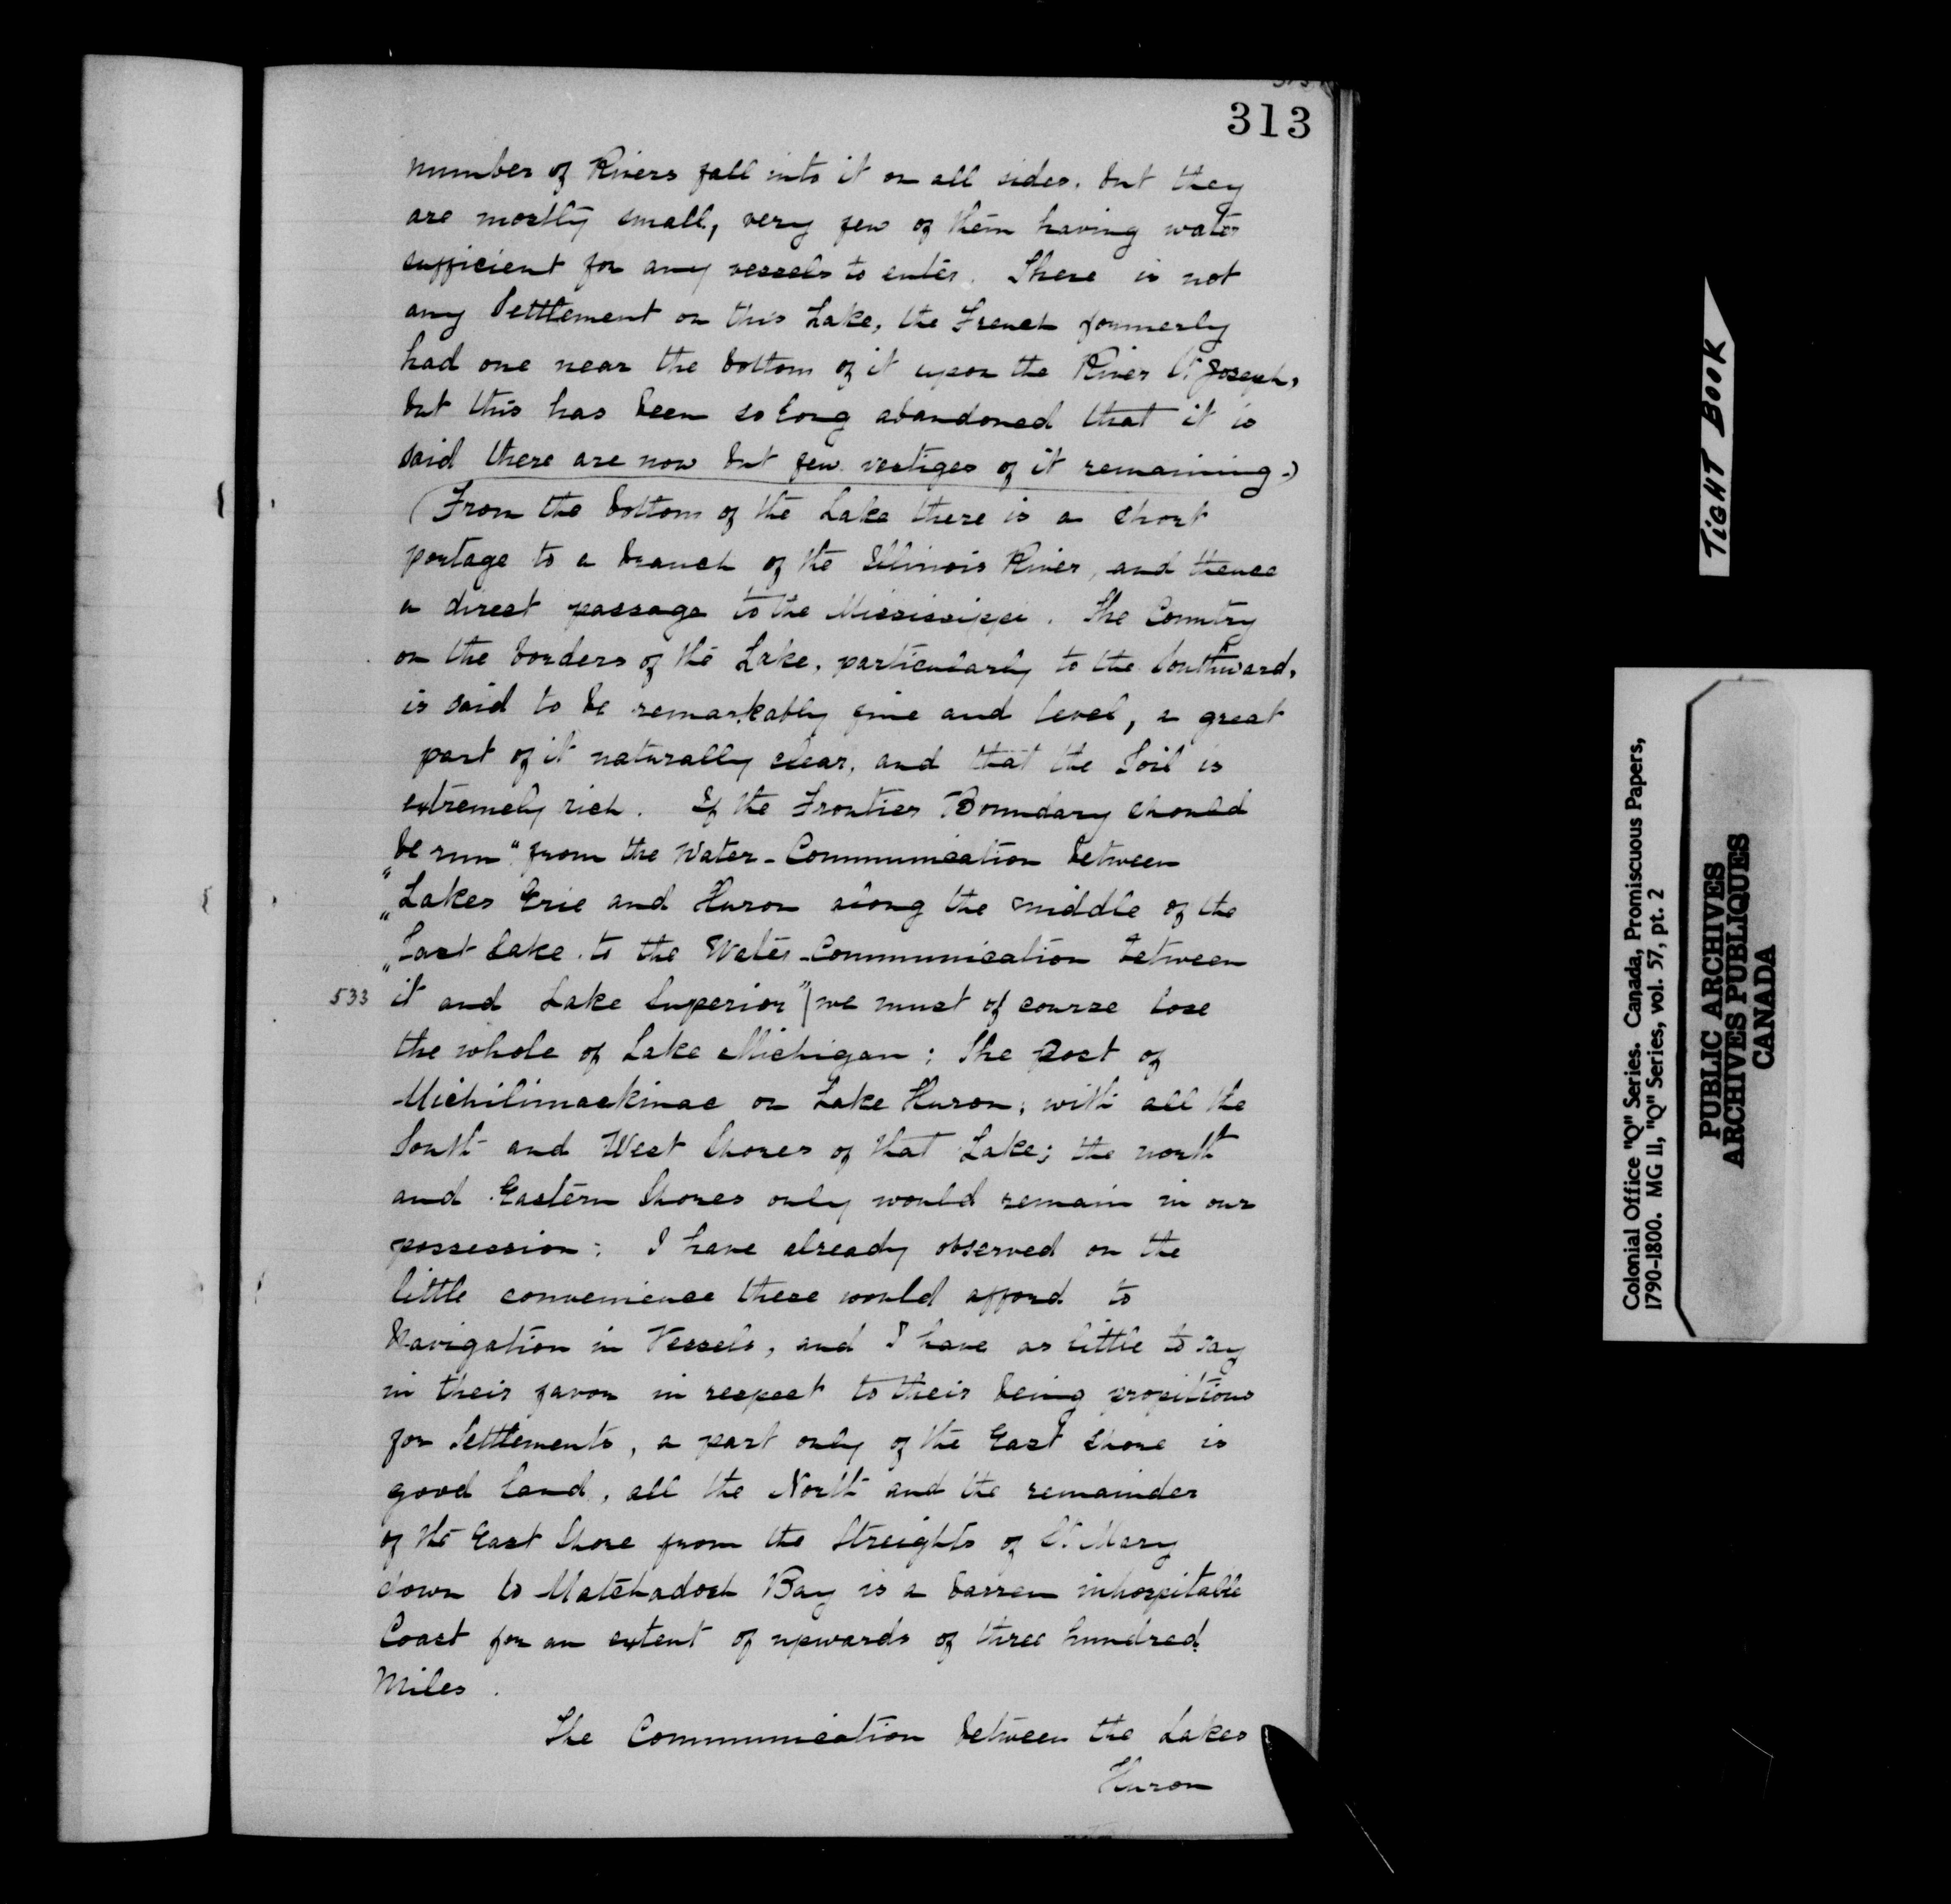 313
number of Rivers fall into it on all sides. but they
are mostly small, very few of them having water
sufficient for any vessels to enter. There is not
any Settlement on this Lake, the French formerly
had one near the bottom of it upon the River St. Joseph,
but this has been so long abandoned that it is
said there are now but few vestiges of it remaining.)
(From the bottom of the Lake there is a short
portage to a branch of the Illinois River, and thence
a direct passage to the Mississippi. The Country
on the borders of the Lake, particularly to the Southward,
is said to be remarkably fine and level, a great
part of it naturally clear, and that the Soil is
extremely rich. If the Frontier Boundary should
be run "from the Water-Communication between
"Lakes Erie and Huron along the middle of the
"Last Lake to the Water-Communication between
533 "it and Lake Superior" | we must of course lose
the whole of Lake Michigan; The post of
Michilimackinac on Lake Huron; with all the
South and West Shores of that Lake; the north
and Eastern Shores only would remain in our
possession; I have already observed on the
little convenience these would afford to
Navigation in Vessels, and I have as little to say
in their favor in respect to their being propitious
for Settlements, a part only of the East Shore is
good land, all the North and the remainder
of the East Shore from the Streights of St. Mary
down to Matchadosh Bay is a barren inhospitable
Coast for an extent of upwards of three hundred
Miles.
The Communication between the Lakes
Huron
TIGHT BOOK
Colonial Office "Q" Series. Canada, Promiscuous Papers,
1790-1800. MG 11, "Q" Series, vol. 57, pt. 2
PUBLIC ARCHIVES
ARCHIVES PUBLIQUES
CANADA